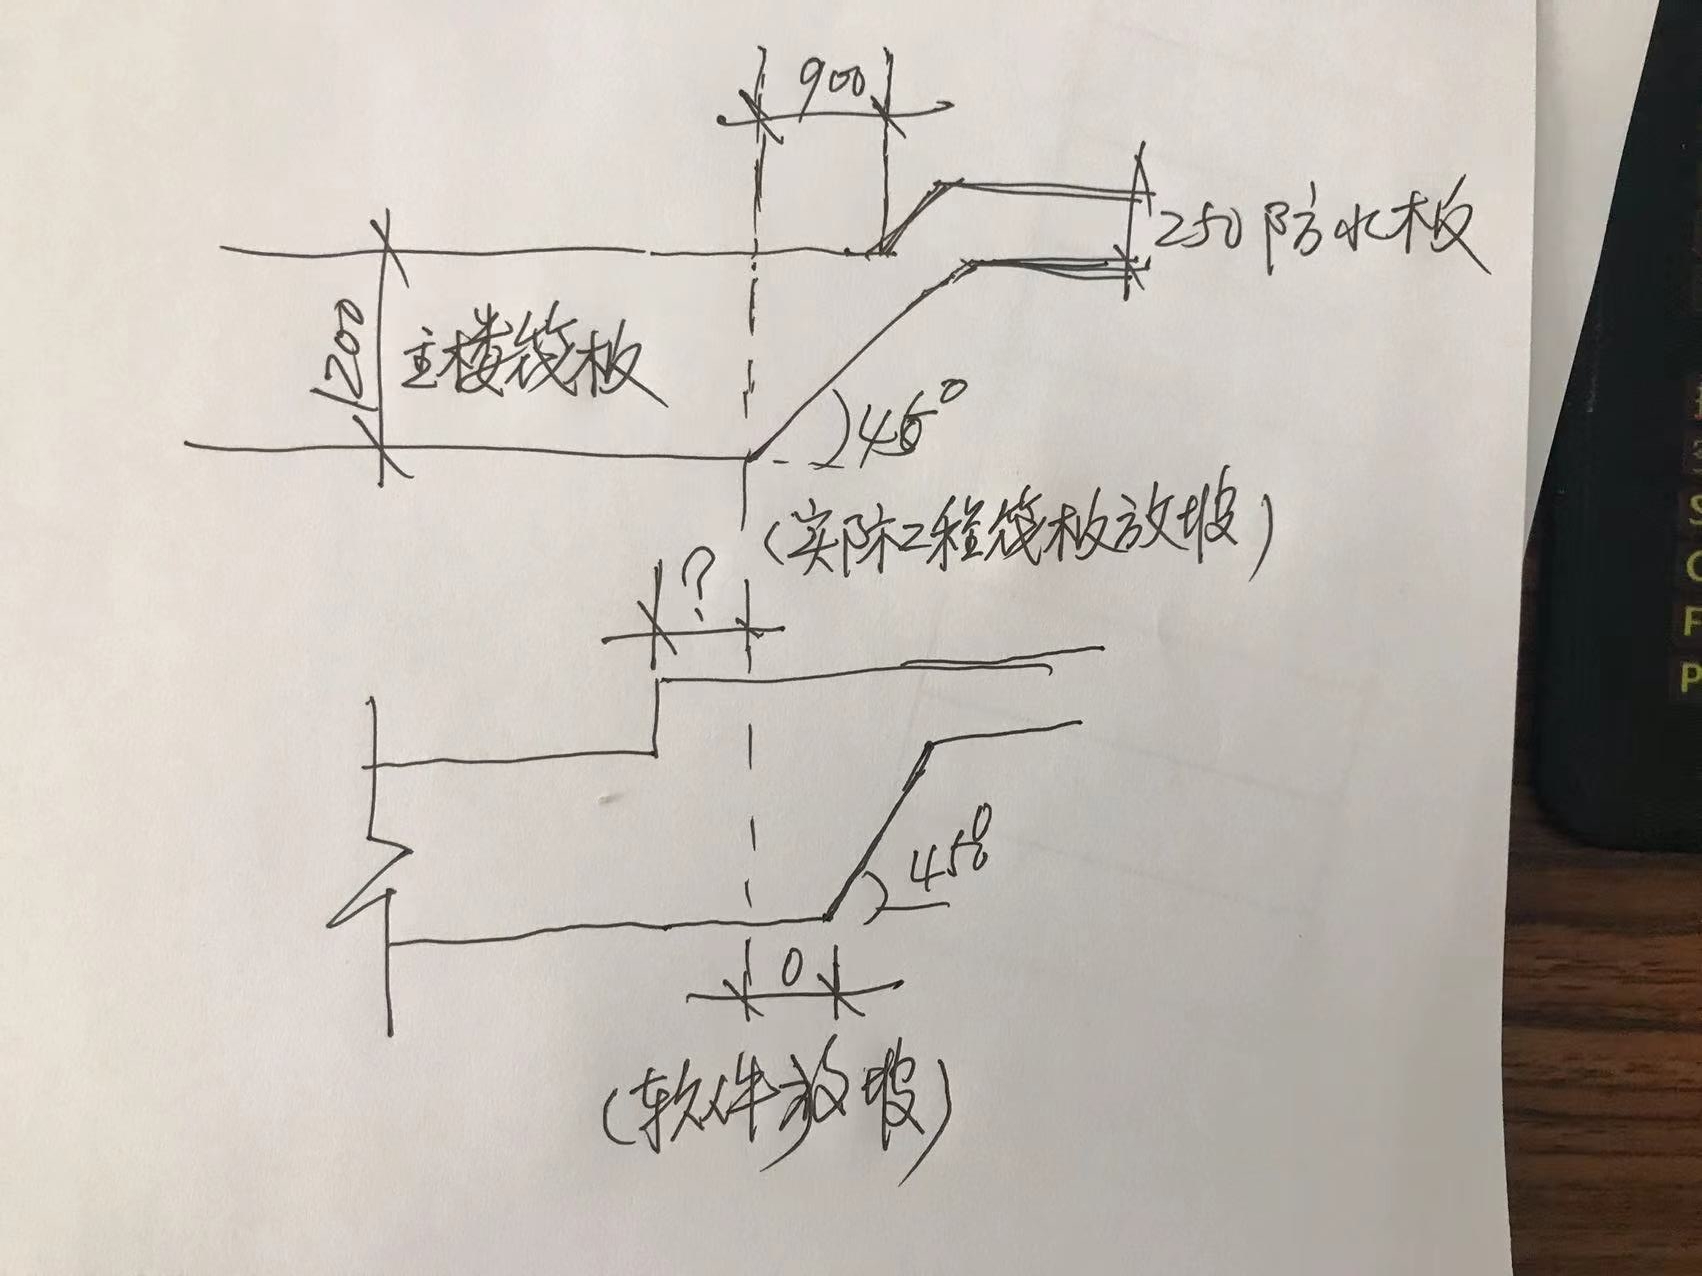 900
250防水板
1200
主楼筏板
45°
(实际工程筏板放坡)
?
45°
0
(软件放坡)
S
C
F
P